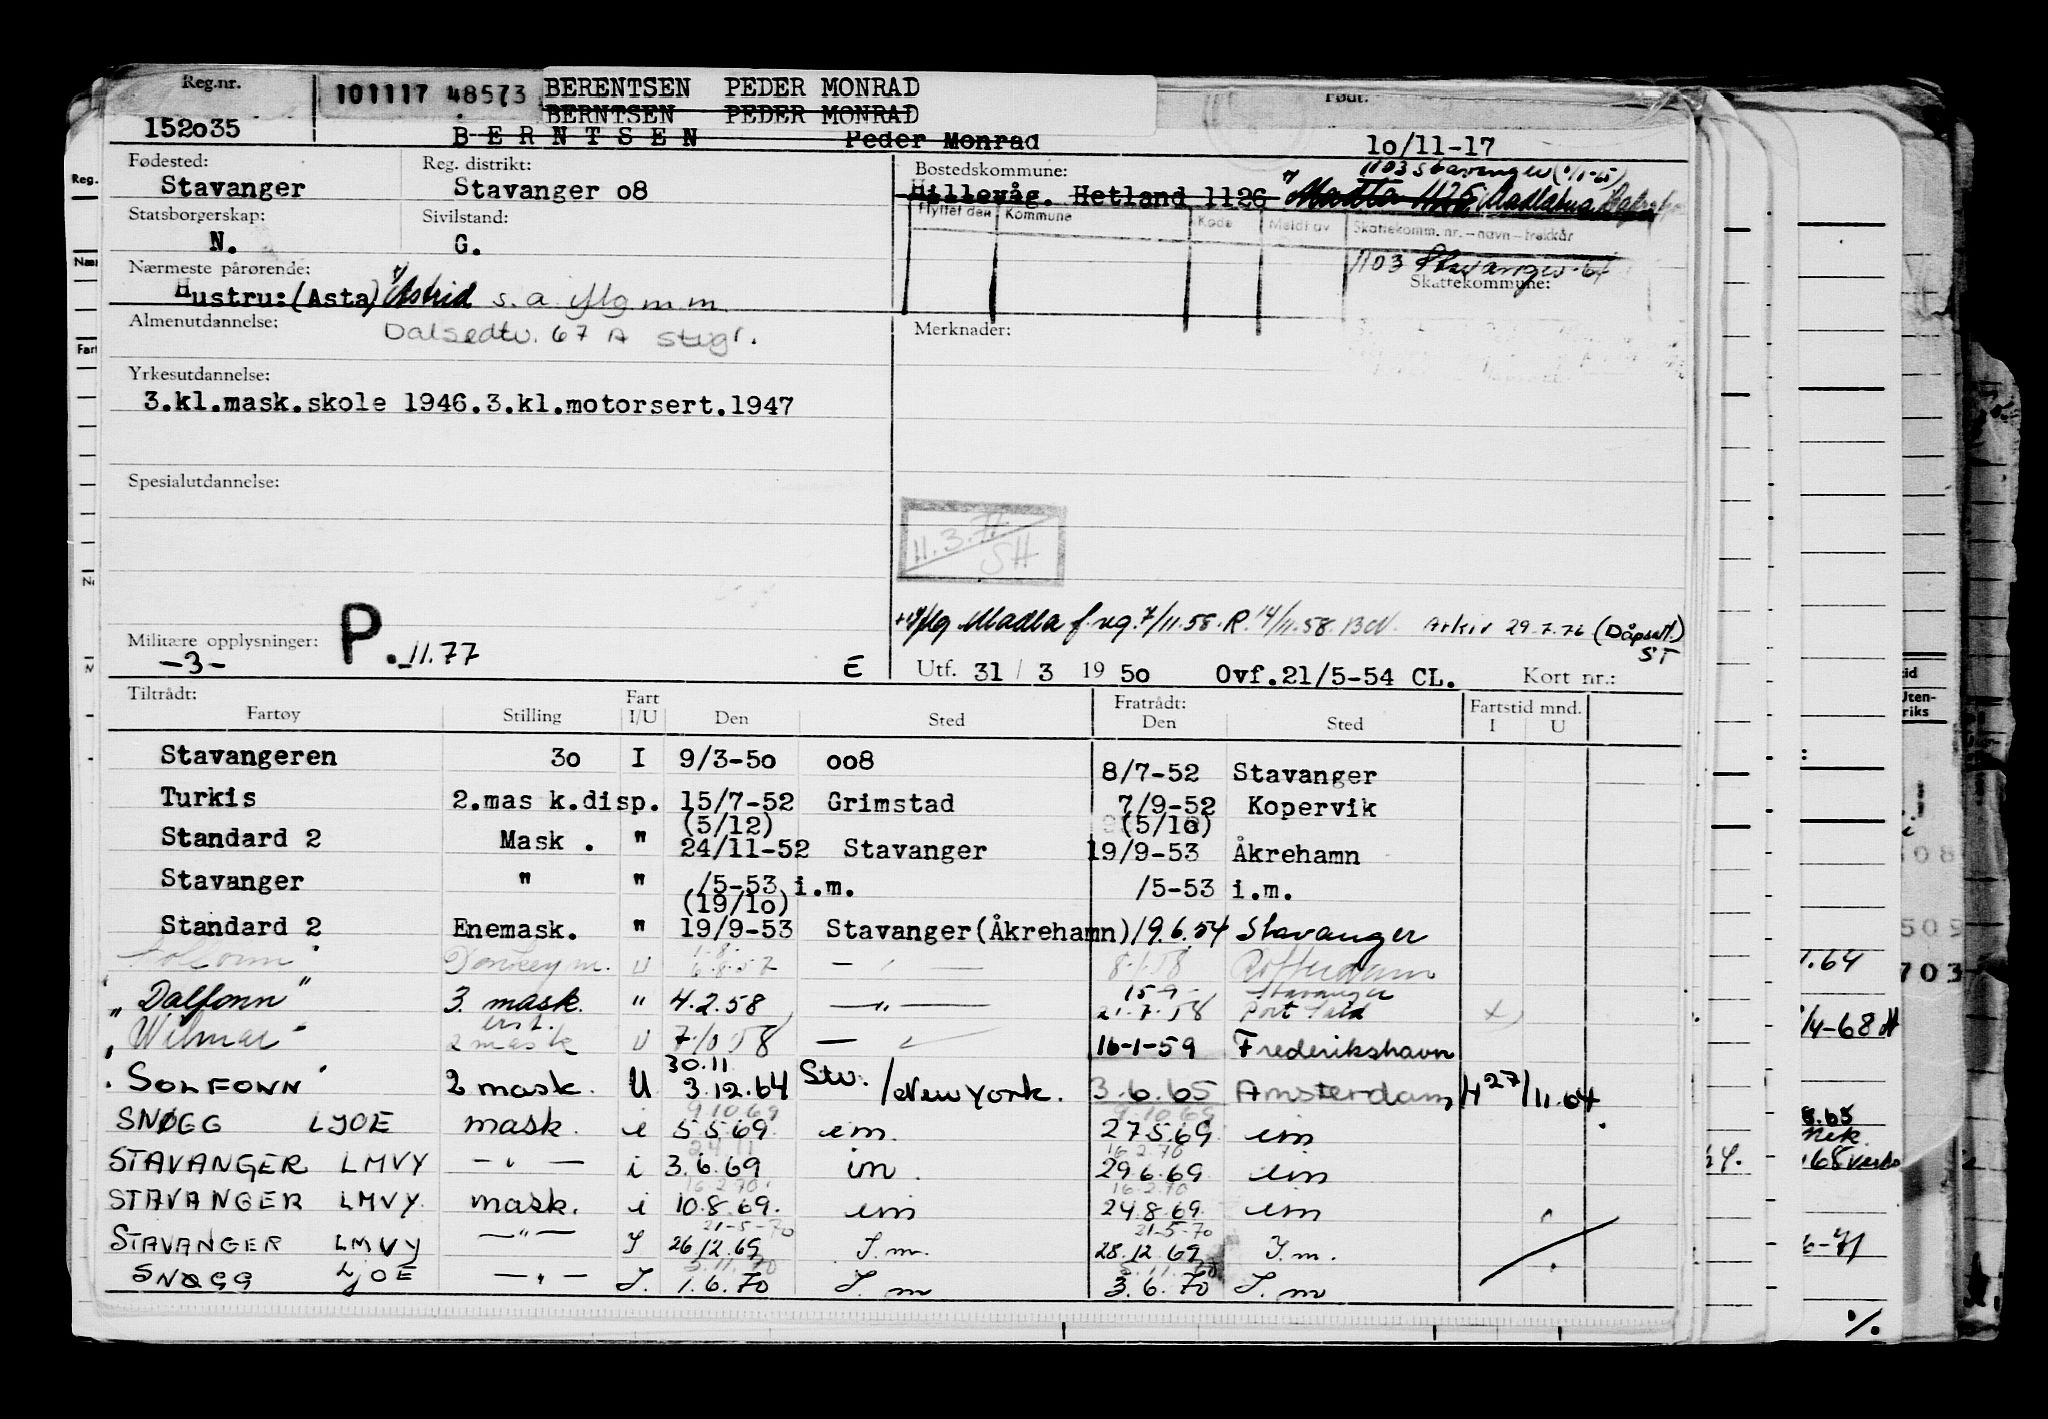 Reg.nr. 101117 48573 BERENTSEN PEDER MONRAD Født:
BERNTSEN PEDER MONRAD
152035 BERNTSEN Peder Monrad 10/11-17
Fødested: Reg. distrikt: Bostedskommune: 1103 Stavanger
Stavanger Stavanger 08 Hillevåg. Hetland 1126 Madla
Statsborgerskap: Sivilstand: Flyttet den Kommune Kode Meldt av Skattekomm. nr.-navn-trekkår
N. G.
Nærmeste pårørende: 1103 Stavanger-64
Hustru:(Asta) Astrid s.a. iflg m.m. Skattekommune:
Almenutdannelse: Dalsedtv. 67 A Stvgr. Merknader:
Yrkesutdannelse:
3.kl.mask.skole 1946.3.kl.motorsert.1947
Spesialutdannelse:
11.3.71
SH
iflg Madla f.reg. 7/11.58. R. 14/11.58. Arkiv 29.7.76 (Dåpsatt.)
ST
Militære opplysninger: P. 11.77
-3- E Utf. 31/3 1950 Ovf.21/5-54 CL. Kort nr.:
Tiltrådt: Fart Fratrådt: Fartstid mnd.
Fartøy Stilling I/U Den Sted Den Sted I U
Stavangeren 30 I 9/3-50 008 8/7-52 Stavanger
Turkis 2.mas k.disp. 15/7-52 Grimstad 7/9-52 Kopervik
(5/12) (5/10)
Standard 2 Mask. " 24/11-52 Stavanger 19/9-53 Åkrehamn
Stavanger " " /5-53 i.m. /5-53 i.m.
(19/10)
Standard 2 Enemask. " 19/9-53 Stavanger(Åkrehamn)/9.6.54 Stavanger
Solfonn Donkeym. U 6.8.57 — " — 8.1.58 Rotterdam
15-9- Stavanger
"Dalfonn" 3. mask. " 4.2.58 — " — 21.7.58 Port Said
"Wilmar" 2 mask U 7.10.58 — " — 16-1-59 Frederikshavn
30.11
"SOLFONN" 2 mask. U 3.12.64 Stv./New York. 3.6.65 Amsterdam H 27/11.64
9.10.69 9.10.69
SNØGG LJOE mask. i 5.5.69 im. 27.5.69 im
24.11 16.2.70
STAVANGER LMVY — " — i 3.6.69 im. 29.6.69 im
16.2.70 16.2.70
STAVANGER LMVY. mask. i 10.8.69. im 24.8.69. im
21-5-70 21-5-70
STAVANGER LMVY — " — I 26/12.69 I.m. 28.12.69 I.m.
5.11.70 5.11.70
SNØGG LJOE — " — I. 1.6.70 I.m 3.6.70 I.m